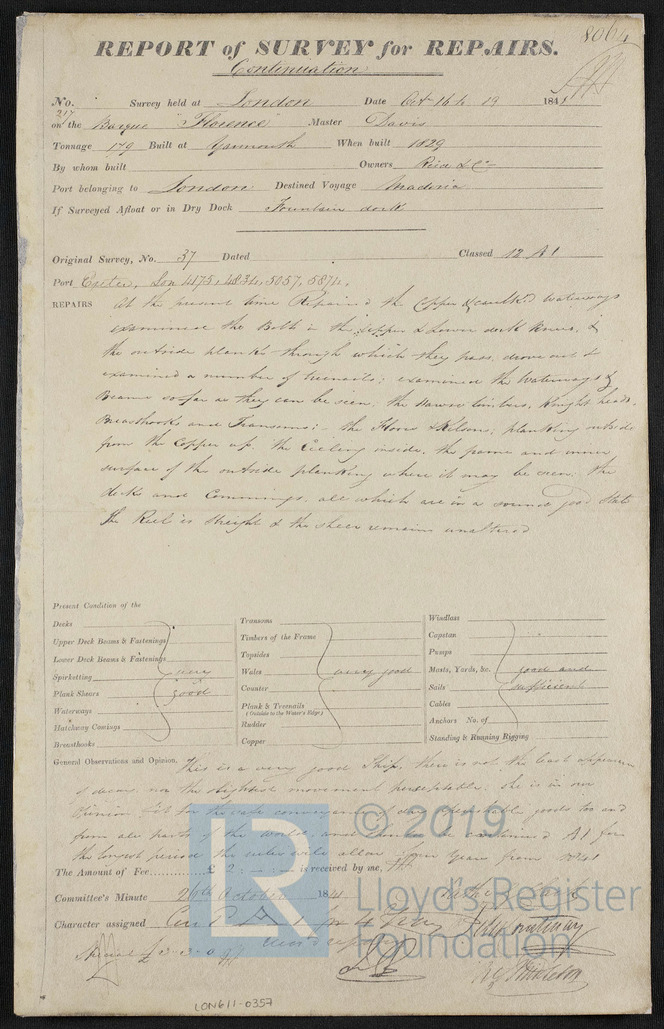 8064
REPORT of SURVEY for REPAIRS.
Continuation
No. 317 Survey held at London Date Octr 16th 19 1841
on the Barque "Florence" Master Davis
Tonnage 179 Built at Yarmouth When built 1829
By whom built Owners
Port belonging to London Destined Voyage Madeira
If Surveyed Afloat or in Dry Dock Fountain dock
Original Survey, No. 37 Dated Classed 12 A1
Port Exeter, Lon 4175, 4834, 5057, 5871,
REPAIRS At the present time Repaired the Copper & caulkd Waterways
examined the Bolts in the upper & Lower deck Knees, &
the outside planks through which they pass, drove out &
examined a number of treenails; examined the Waterways &
Beams so far as they can be seen, the Hawse timbers, Knight heads,
Breasthooks and Transoms; the Floors & Kelsons; planking outside
from the Copper up, the Cieling inside, the frame and inner
surface of the outside planking where it may be seen, the
decks and Commings, all which are in a sound good State
The Keel is Streight & the sheer remains unaltered
Present Condition of the
Decks
Upper Deck Beams & Fastenings
Lower Deck Beams & Fastenings
Spirketting very
Plank Shears good
Waterways
Hatchway Comings
Breasthooks
Transoms
Timbers of the Frame
Topsides
Wales very good
Counter
Plank & Treenails
(Outside to the Water's Edge)
Rudder
Copper
Windlass
Capstan
Pumps
Masts, Yards, &c. good and
Sails sufficient
Cables
Anchors No. of
Standing & Running Rigging
General Observations and Opinion, This is a very good Ship, there is not the least appearance
of decay, nor the slightest movement perceptable; she is in our
Opinion fit for the safe conveyance of dry & perishable goods to and
from all parts of the world, and should be continued A1 for
the longest period the rules will allow four Years from 1841
The Amount of Fee £ 2 : - : - is received by me,
Committee's Minute 26th October 1841
Character assigned
Special £3-3-0
LON611-0357
© 2019
LR
Lloyd's Register
Foundation